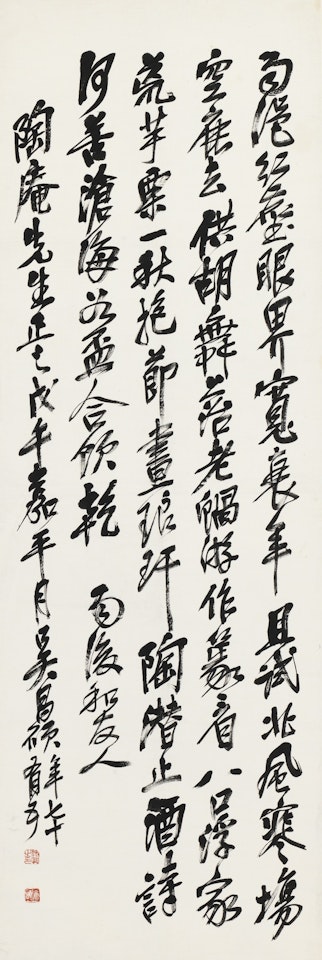 雨浥紅塵眼界寬衰年且試北風寒場
空鹿去供胡舞苔老蝸游作篆看八口浮家
荒芋栗一秋抱節畫琅玕陶潛止酒詩
何苦滄海為盃合飲乾 雨後和友人
陶庵先生正之戊午嘉平月吳昌碩年七十有五